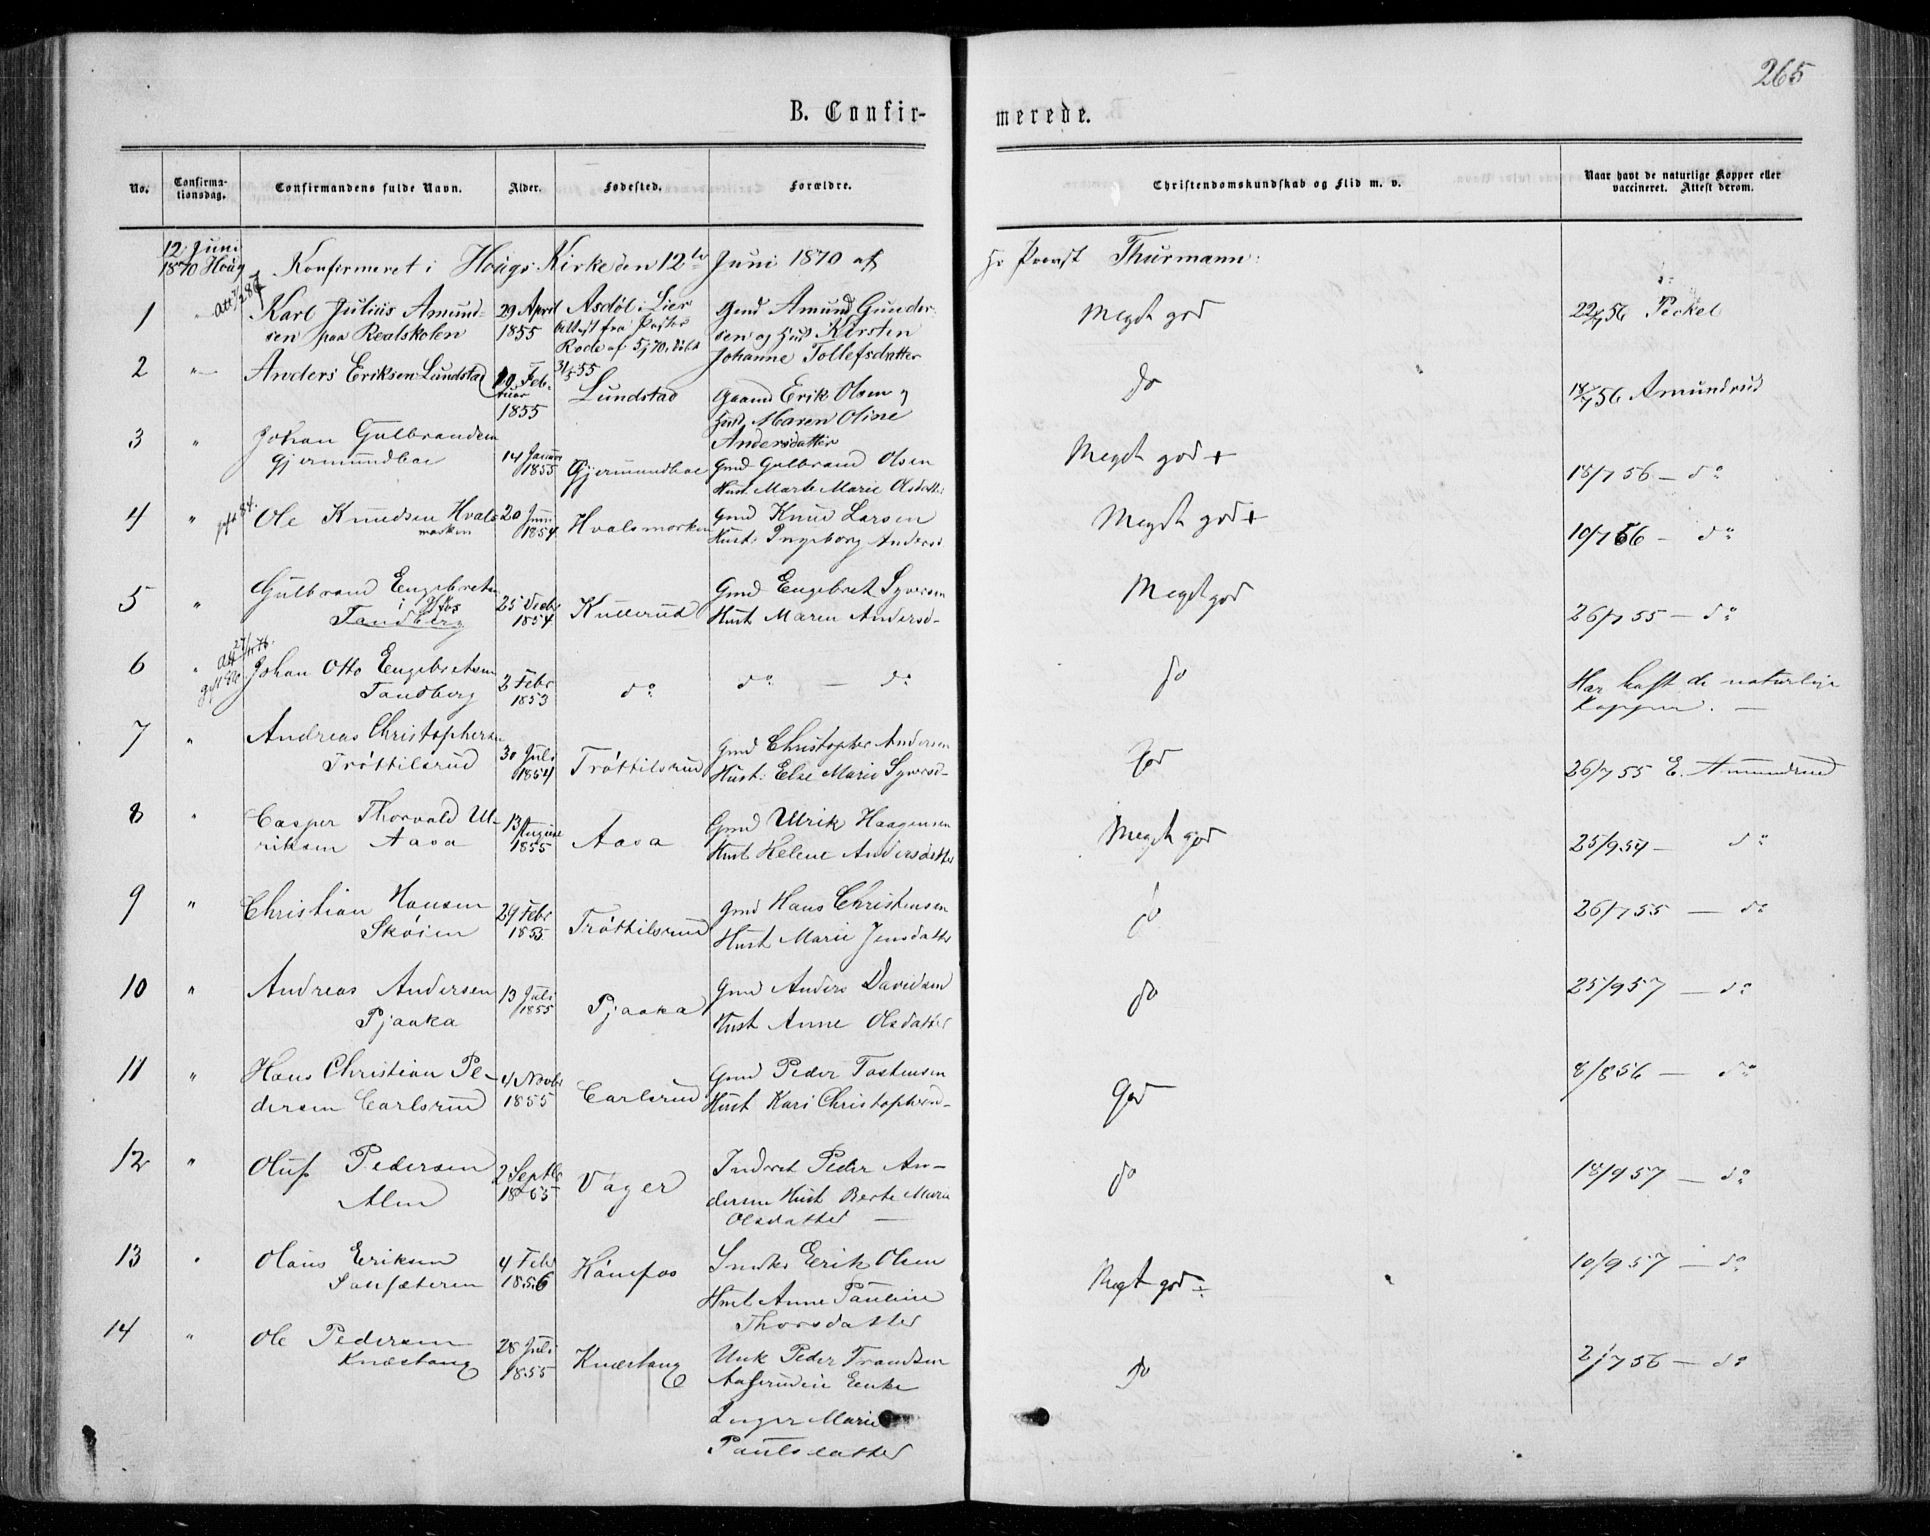 265
B. Confir-
merede.
No.
Confirma-
tionsdag.
Confirmandens fulde Navn.
Alder.
Fødested.
Forældre.
Christendomskundskab og Flid m. v.
Naar havt de naturlige Kopper eller
vaccineret. Attest derom.
12 Juni
1870 Houg
Konfirmeret i Hougs Kirke den 12te Juni 1870 af
Hr Provst Thurmann:
1
Karl Julius Amund-
sen paa Realskolen
29 April
1855
Asdøl i Lier
Attest fra Pastor
Rode af 5/5 70. Døbt
31/5 55
Gmd Amund Gunder-
sen og Hust Kirsten
Johanne Tollefsdatter
Meget god
22/7 56 Pockel
2
"
Anders Eriksen Lundstad
19 Feb-
ruar
1855
Lundstad
Gaamd Erik Olsen og
Hust Maren Oline
Andersdatter
do
18/7 56 Amundrud
3
"
Johan Gulbrandsen
Gjermundboe
14 Januar
1855
Gjermundboe
Gmd Gulbrand Olsen
Hust. Marte Marie Olsdatter
Meget god +
18/7 56 — do
4
"
Ole Knudsen Hvals-
morken
20 Juni
1854
Hvalsmorken
Gmd Knud Larsen
Hust: Ingeborg Andersd
Meget god +
10/7 56 — do
5
"
Gulbrand Engebretsen
Tandberg
25 Decbr
1854
Kullerud
Gmd Engebret Syversen
Hust Maren Andersd-
Meget god
26/7 55 — do
6
"
Johan Otto Engebretsen
Tandberg
2 Febr
1853
do
do — do
do
Har haft de naturlige
Kopper. —
7
"
Andreas Christophersen
Trøttilsrud
30 Juli
1854
Trøttilsrud
Gmd Christopher Andersen
Hust: Else Marie Syversd-
God
26/7 55 E. Amundrud
8
"
Casper Thorvald Ul-
riksen Aasa
13 August
1855
Aasa
Gmd Ulrik Haagensen
Hust Helene Andersdatter
Meget god
25/9 54 — do
9
"
Christian Hansen
Skøien
29 Febr
1855
Trøttilsrud
Gmd Hans Christensen
Hust Marie Jensdatter
do
26/7 55 — do
10
"
Andreas Andersen
Pjaaka
13 Juli
1855
Pjaaka
Gmd Anders Davidsen
Hust Anne Olsdatter
do
25/9 57 — do
11
"
Hans Christian Pe-
dersen Carlsrud
4 Novbr
1855
Carlsrud
Gmd Peder Tostensen
Hust Kari Christophersd-
God
8/8 56 — do
12
"
Oluf Pedersen
Alm
2 Septbr
1855
Vager
Inderst Peder An-
dersen Hust Berte Marie
Olsdatter —
do
18/9 57 — do
13
"
Olaus Eriksen
4 Febr
1856
Hønefos
Snedker Erik Olsen
Hust Anne Pauline
Thorsdatter
Meget god ÷
10/9 57 — do
14
"
Ole Pedersen
Knæstang
28 Juli
1855
Knæstang
Unk Peder Trondsen
Enke
Inger Marie
Paulsdatter
do
2/7 56 — do